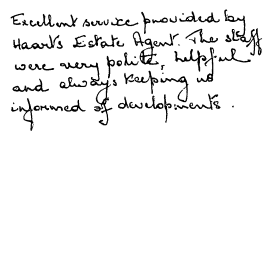 Excellent service provided by
Haart's Estate Agent. The staff
were very polite, helpful
and always keeping us
informed of developments.